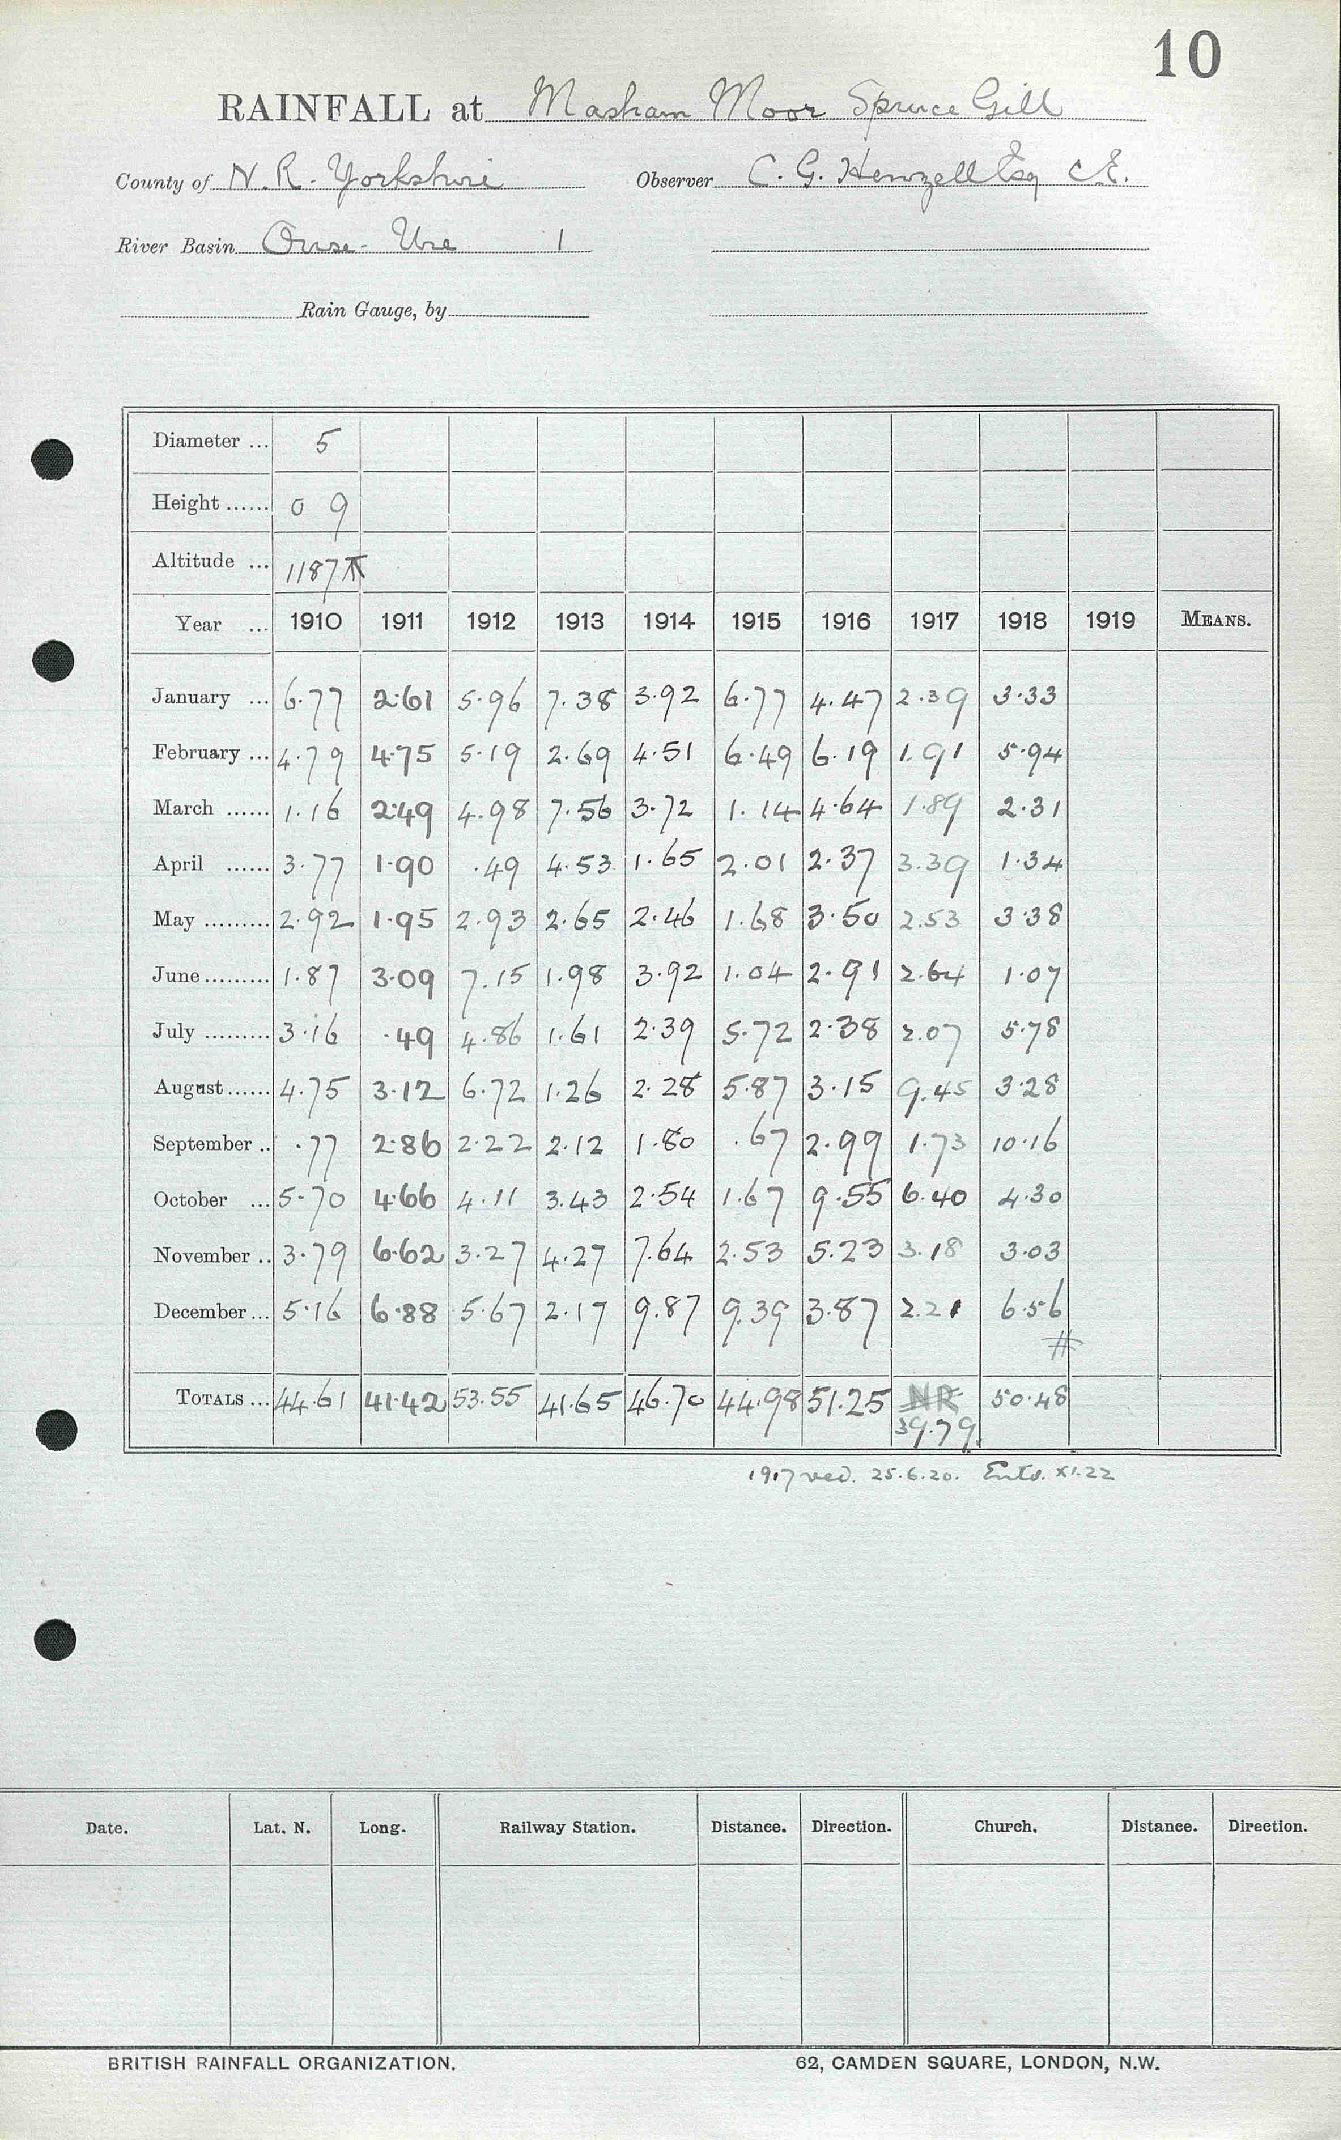 10
RAINFALL at Masham Moor Spruce Gill
County of N. R. Yorkshire Observer C. G. Henzell Esq C.E.
River Basin Ouse - Ure 1
Rain Gauge, by
Diameter ... 5
Height ...... 0 9
Altitude ... 1187
Year ... 1910 1911 1912 1913 1914 1915 1916 1917 1918 1919 MEANS.
January ... 6.77 2.61 5.96 7.38 3.92 6.77 4.47 2.39 3.33
February ... 4.79 4.75 5.19 2.69 4.51 6.49 6.19 1.91 5.94
March ...... 1.16 2.49 4.98 7.56 3.72 1.14 4.64 1.89 2.31
April ...... 3.77 1.90 .49 4.53 1.65 2.01 2.37 3.39 1.34
May ......... 2.92 1.95 2.93 2.65 2.46 1.68 3.50 2.53 3.38
June ......... 1.87 3.09 7.15 1.98 3.92 1.04 2.91 2.64 1.07
July ......... 3.16 .49 4.86 1.61 2.39 5.72 2.38 2.07 5.78
August ...... 4.75 3.12 6.72 1.26 2.28 5.87 3.15 9.45 3.28
September .. .77 2.86 2.22 2.12 1.80 .67 2.99 1.73 10.16
October ... 5.70 4.66 4.11 3.43 2.54 1.67 9.55 6.40 4.30
November .. 3.79 6.62 3.27 4.27 7.64 2.53 5.23 3.18 3.03
December ... 5.16 6.88 5.67 2.17 9.87 9.39 3.87 2.21 6.56
#
TOTALS ... 44.61 41.42 53.55 41.65 46.70 44.98 51.25 NR 50.48
39.79
1917 recd. 25.6.20. Entd. XI.22
Date. Lat. N. Long. Railway Station. Distance. Direction. Church. Distance. Direction.
BRITISH RAINFALL ORGANIZATION. 62, CAMDEN SQUARE, LONDON, N.W.